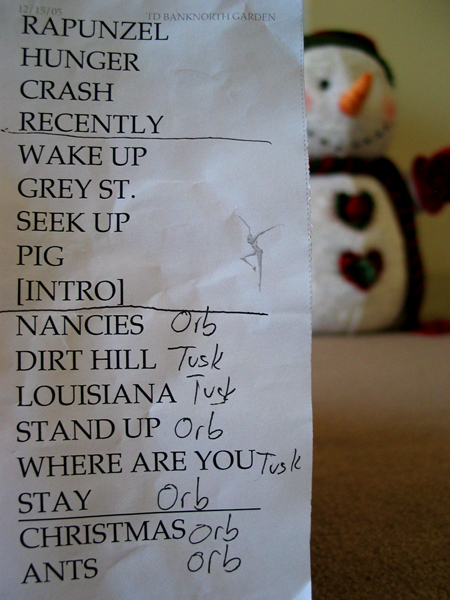 12/15/05 TD BANKNORTH GARDEN
RAPUNZEL
HUNGER
CRASH
RECENTLY
WAKE UP
GREY ST.
SEEK UP
PIG
[INTRO]
NANCIES Orb
DIRT HILL Tusk
LOUISIANA Tusk
STAND UP Orb
WHERE ARE YOU Tusk
STAY Orb
CHRISTMAS Orb
ANTS Orb